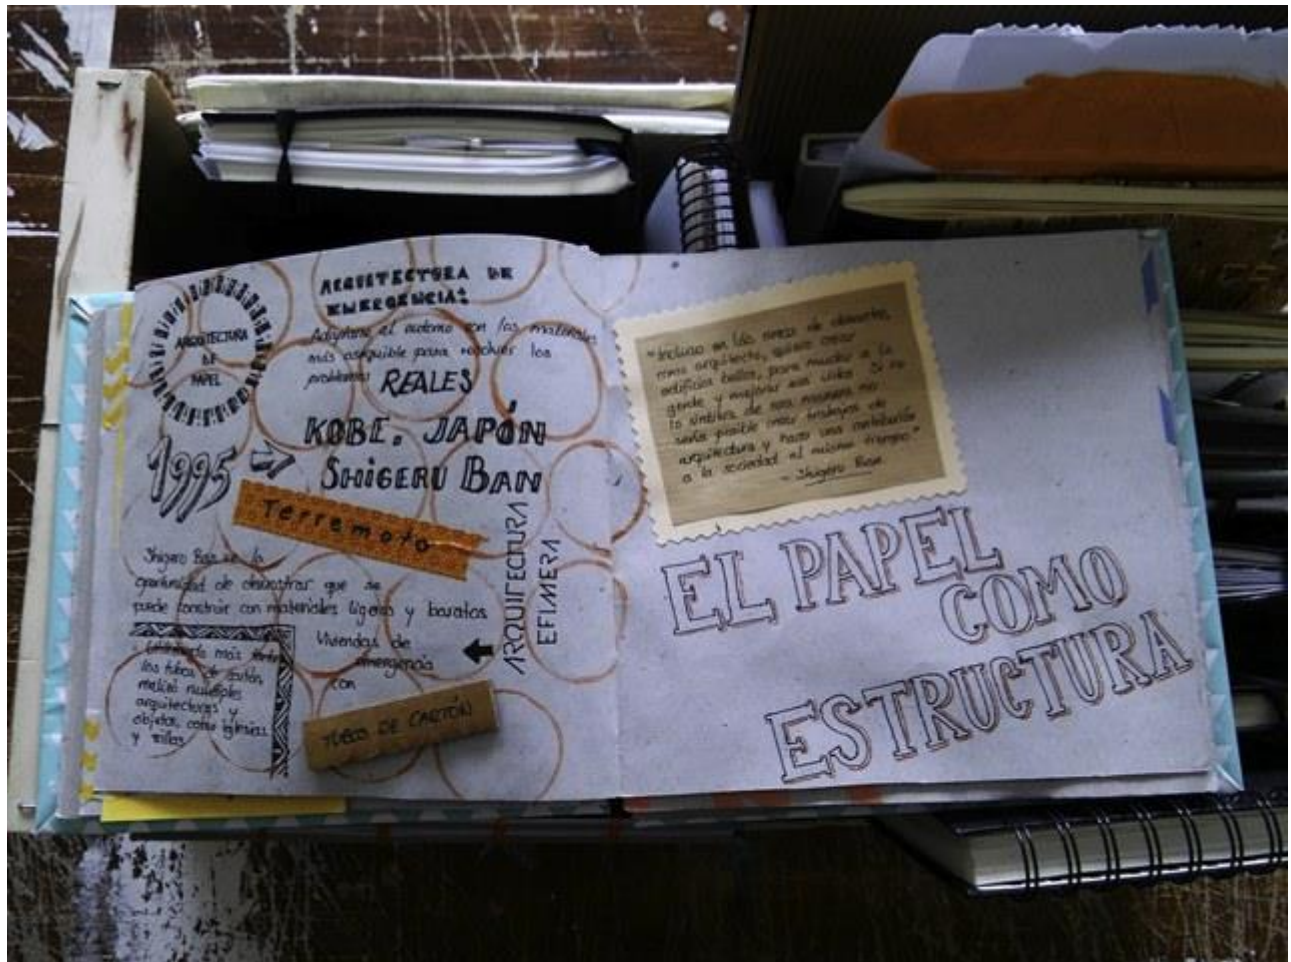 ARQUITECTURA
DE
PAPEL
ARQUITECTURA DE
EMERGENCIA:
Adaptarse al entorno con los materiales
más asequible para resolver los
problemas REALES
1995
KOBE. JAPÓN
SHIGERU BAN
Terremoto
ARQUITECTURA
EFIMERA
Shigeru Ban la
oportunidad de demostrar que se
puede construir con materiales ligeros y baratos
Viviendas de
emergencia
con
TUBOS DE CARTÓN
más tarde
los tubos de cartón
realizó multiples
arquitecturas y
objetos, como iglesias
y sillas
"Incluso en las zonas de desastre,
como arquitecto, quiero crear
edificios bellos, para mucho a la
gente y mejorar sus vidas. Si no
lo sintiera de esa manera no
sería posible crear trabajos de
arquitectura y hacer una contribución
a la sociedad al mismo tiempo."
- Shigeru Ban
EL PAPEL
COMO
ESTRUCTURA